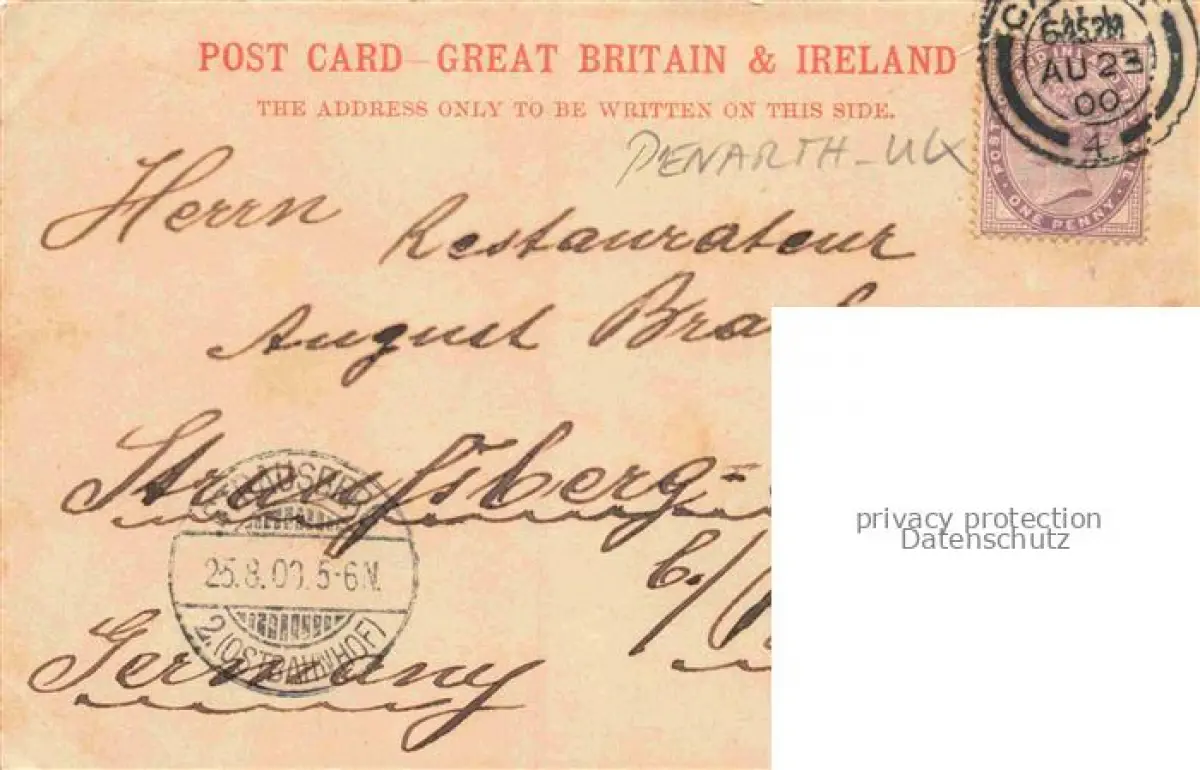 POST CARD GREAT BRITAIN & IRELAND
THE ADDRESS ONLY TO BE WRITTEN ON THIS SIDE.
6.45PM
AU 23
00
4
ONE PENNY
PENARTH - UK
Herrn
Restaurateur
August
Straußberg-
Germany
25.8.00.5-6N.
2.(OSTBAHNHOF)
privacy protection
Datenschutz